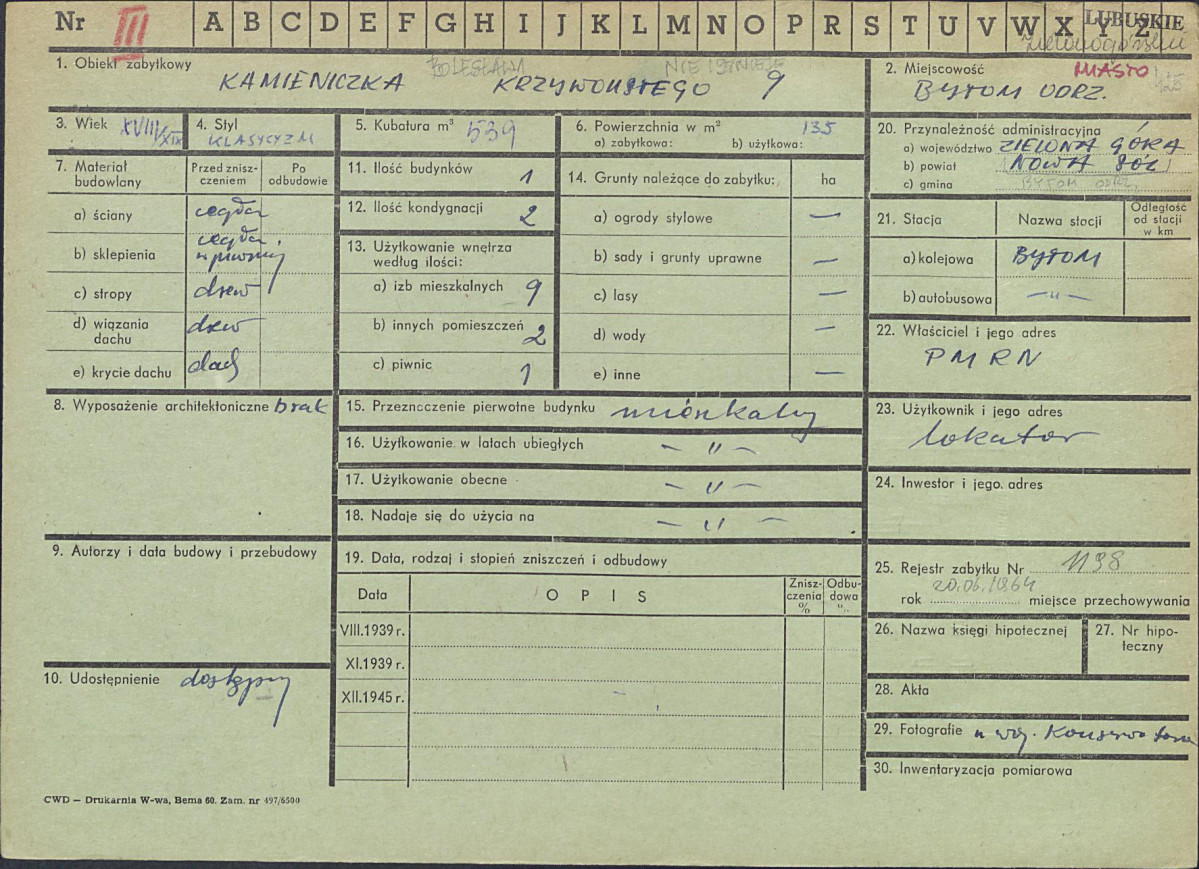 Nr III A B C D E F G H I J K L M N O P R S T U V W X Y Z LUBUSKIE
zielonogórskie
1. Obiekt zabytkowy BOLESŁAWA NIE ISTNIEJE
KAMIENICZKA KRZYWOUSTEGO 9
2. Miejscowość MIASTO
BYTOM ODRZ.
3. Wiek XVIII/XIX
4. Styl
KLASYCYZM
5. Kubatura m³ 539
6. Powierzchnia w m² 135
a) zabytkowa: b) użytkowa:
7. Materiał budowlany
Przed zniszczeniem
Po odbudowie
a) ściany cegła
b) sklepienia cegła w piwnicy
c) stropy drew
d) wiązania dachu drew
e) krycie dachu dach
8. Wyposażenie architektoniczne brak
9. Autorzy i data budowy i przebudowy
10. Udostępnienie dostępny
11. Ilość budynków 1
12. Ilość kondygnacji 2
13. Użytkowanie wnętrza
według ilości:
a) izb mieszkalnych 9
b) innych pomieszczeń 2
c) piwnic 1
14. Grunty należące do zabytku: ha
a) ogrody stylowe —
b) sady i grunty uprawne —
c) lasy —
d) wody —
e) inne —
15. Przeznaczenie pierwotne budynku mieszkalny
16. Użytkowanie w latach ubiegłych — " —
17. Użytkowanie obecne — " —
18. Nadaje się do użycia na — " —
19. Data, rodzaj i stopień zniszczeń i odbudowy
Data O P I S Zniszczenia % Odbudowa %
VIII.1939 r.
XI.1939 r.
XII.1945 r.
20. Przynależność administracyjna
a) województwo ZIELONA GÓRA
b) powiat NOWA SÓL
c) gmina BYTOM ODRZ.
21. Stacja Nazwa stacji Odległość od stacji w km
a) kolejowa BYTOM
b) autobusowa — " —
22. Właściciel i jego adres
PMRN
23. Użytkownik i jego adres
lokator
24. Inwestor i jego adres
25. Rejestr zabytku Nr 1138
20.06.1964
rok miejsce przechowywania
26. Nazwa księgi hipotecznej
27. Nr hipoteczny
28. Akta
29. Fotografie u woj. Konserwatora
30. Inwentaryzacja pomiarowa
CWD — Drukarnia W-wa, Bema 60. Zam. nr 497/6500